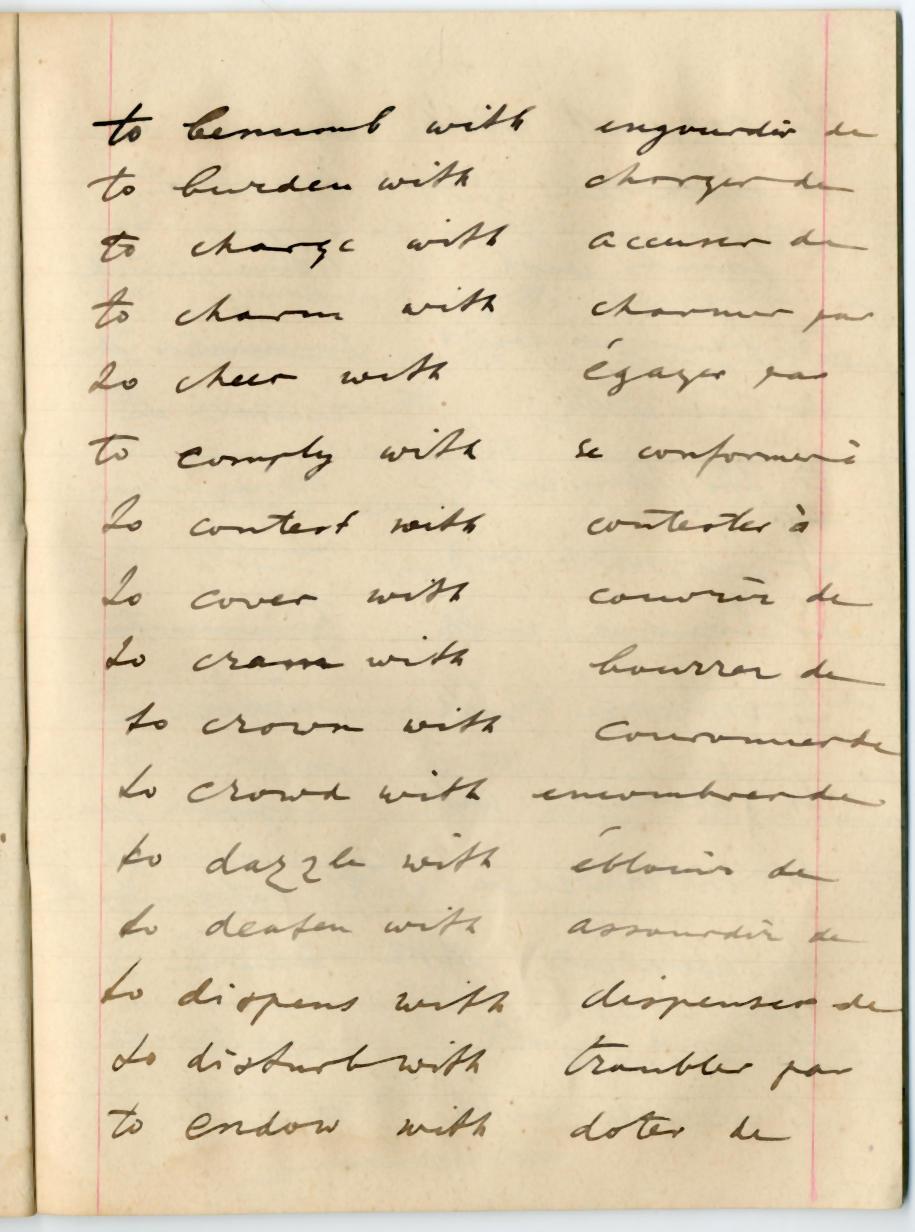 to benumb with engourdir de
to burden with charger de
to charge with accuser de
to charm with charmer par
to cheer with égayer par
to comply with se conformer à
to contest with contester à
to cover with couvrir de
to cram with bourrer de
to crown with couronner de
to crowd with encombrer de
to dazzle with éblouir de
to deafen with assourdir de
to dispens with dispenser de
to disturb with troubler par
to endow with doter de